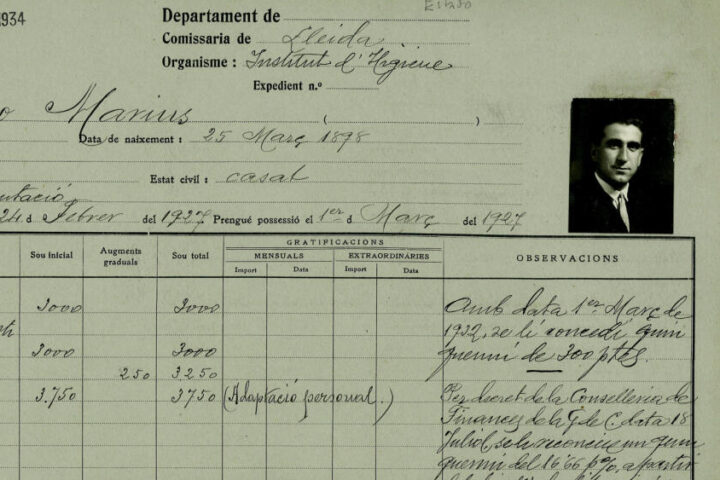 Estado
1934
Departament de
Comissaria de Lleida
Organisme : Institut d'Higiene
Expedient n.º
o Marius ( )
Data de naixement : 25 Març 1898
Estat civil : casat
utació
24 d Febrer del 1927 Prengué possessió el 1er d Març del 1927
GRATIFICACIONS
Sou inicial Augments graduals Sou total MENSUALS EXTRAORDINÀRIES OBSERVACIONS
Import Data Import Data
3000 3000 Amb data 1er Març de
1932, se li concedí quin
3000 3000 quenni de 300 ptes.
250 3250
3.750 3750 (Adaptació personal.) Per decret de la Conselleria de
Finances de la G. de C. data 18
Juliol, se li reconeix un quin
quenni del 16'66 p%, a partir